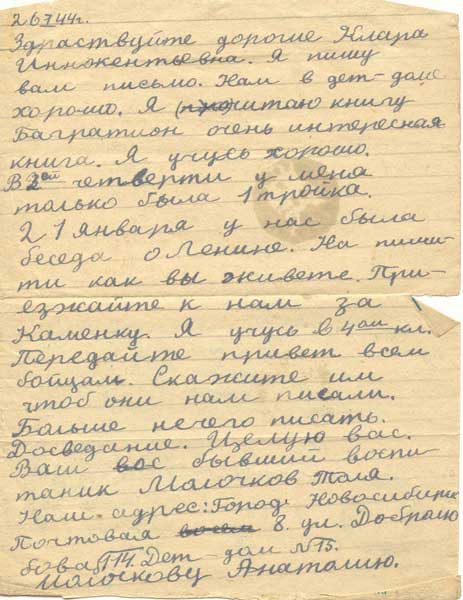 26744г.
Здраствуйте дорогие Клара
Иннокентьевна. Я пишу
вам письмо. Нам в дет-доме
хорошо. Я читаю книгу
Багратион очень интересная
книга. Я учусь хорошо.
В 2ой четверти у меня
только была 1 тройка.
21 января у нас была
беседа о Ленине. На пиши-
ти как вы живете. При-
езжайте к нам за
Каменку. Я учусь в 4ом кл.
Передайте привет всем
бойцам. Скажите им
чтоб они нам писали.
Больше нечего писать.
Досведание. Целую вас.
Ваш вос бывший воспи-
таник Молочков Толя.
Наш адрес: Город Новосибирск
Почтовая 8. ул. Добралю
бова 114. Дет-дом № 15.
Молочкову Анатолию.